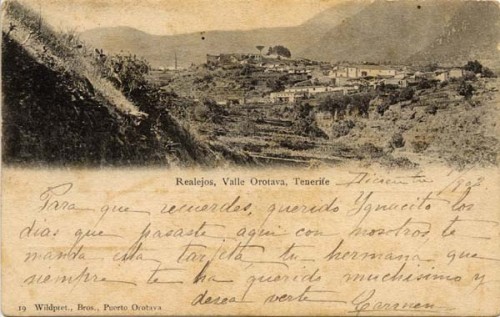 Realejos, Valle Orotava, Tenerife
Para que recuerdes, querido Ygnacito los
dias que pasaste aqui con nosotros, te
manda esta tarjeta tu hermana que
siempre te ha querido muchisimo y
desea verte Carmen
19 Wildpret, Bros., Puerto Orotava